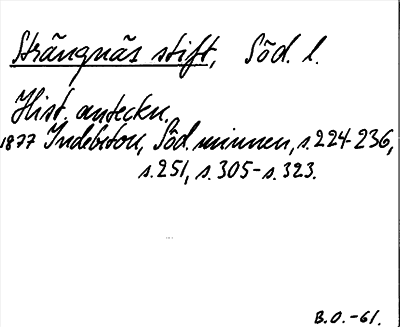 Strängnäs stift, Söd. l.
Hist. anteckn.
1877 Indebetou, Söd. minnen, s. 224-236,
s. 251, s. 305-s. 323.
B.O.-61.